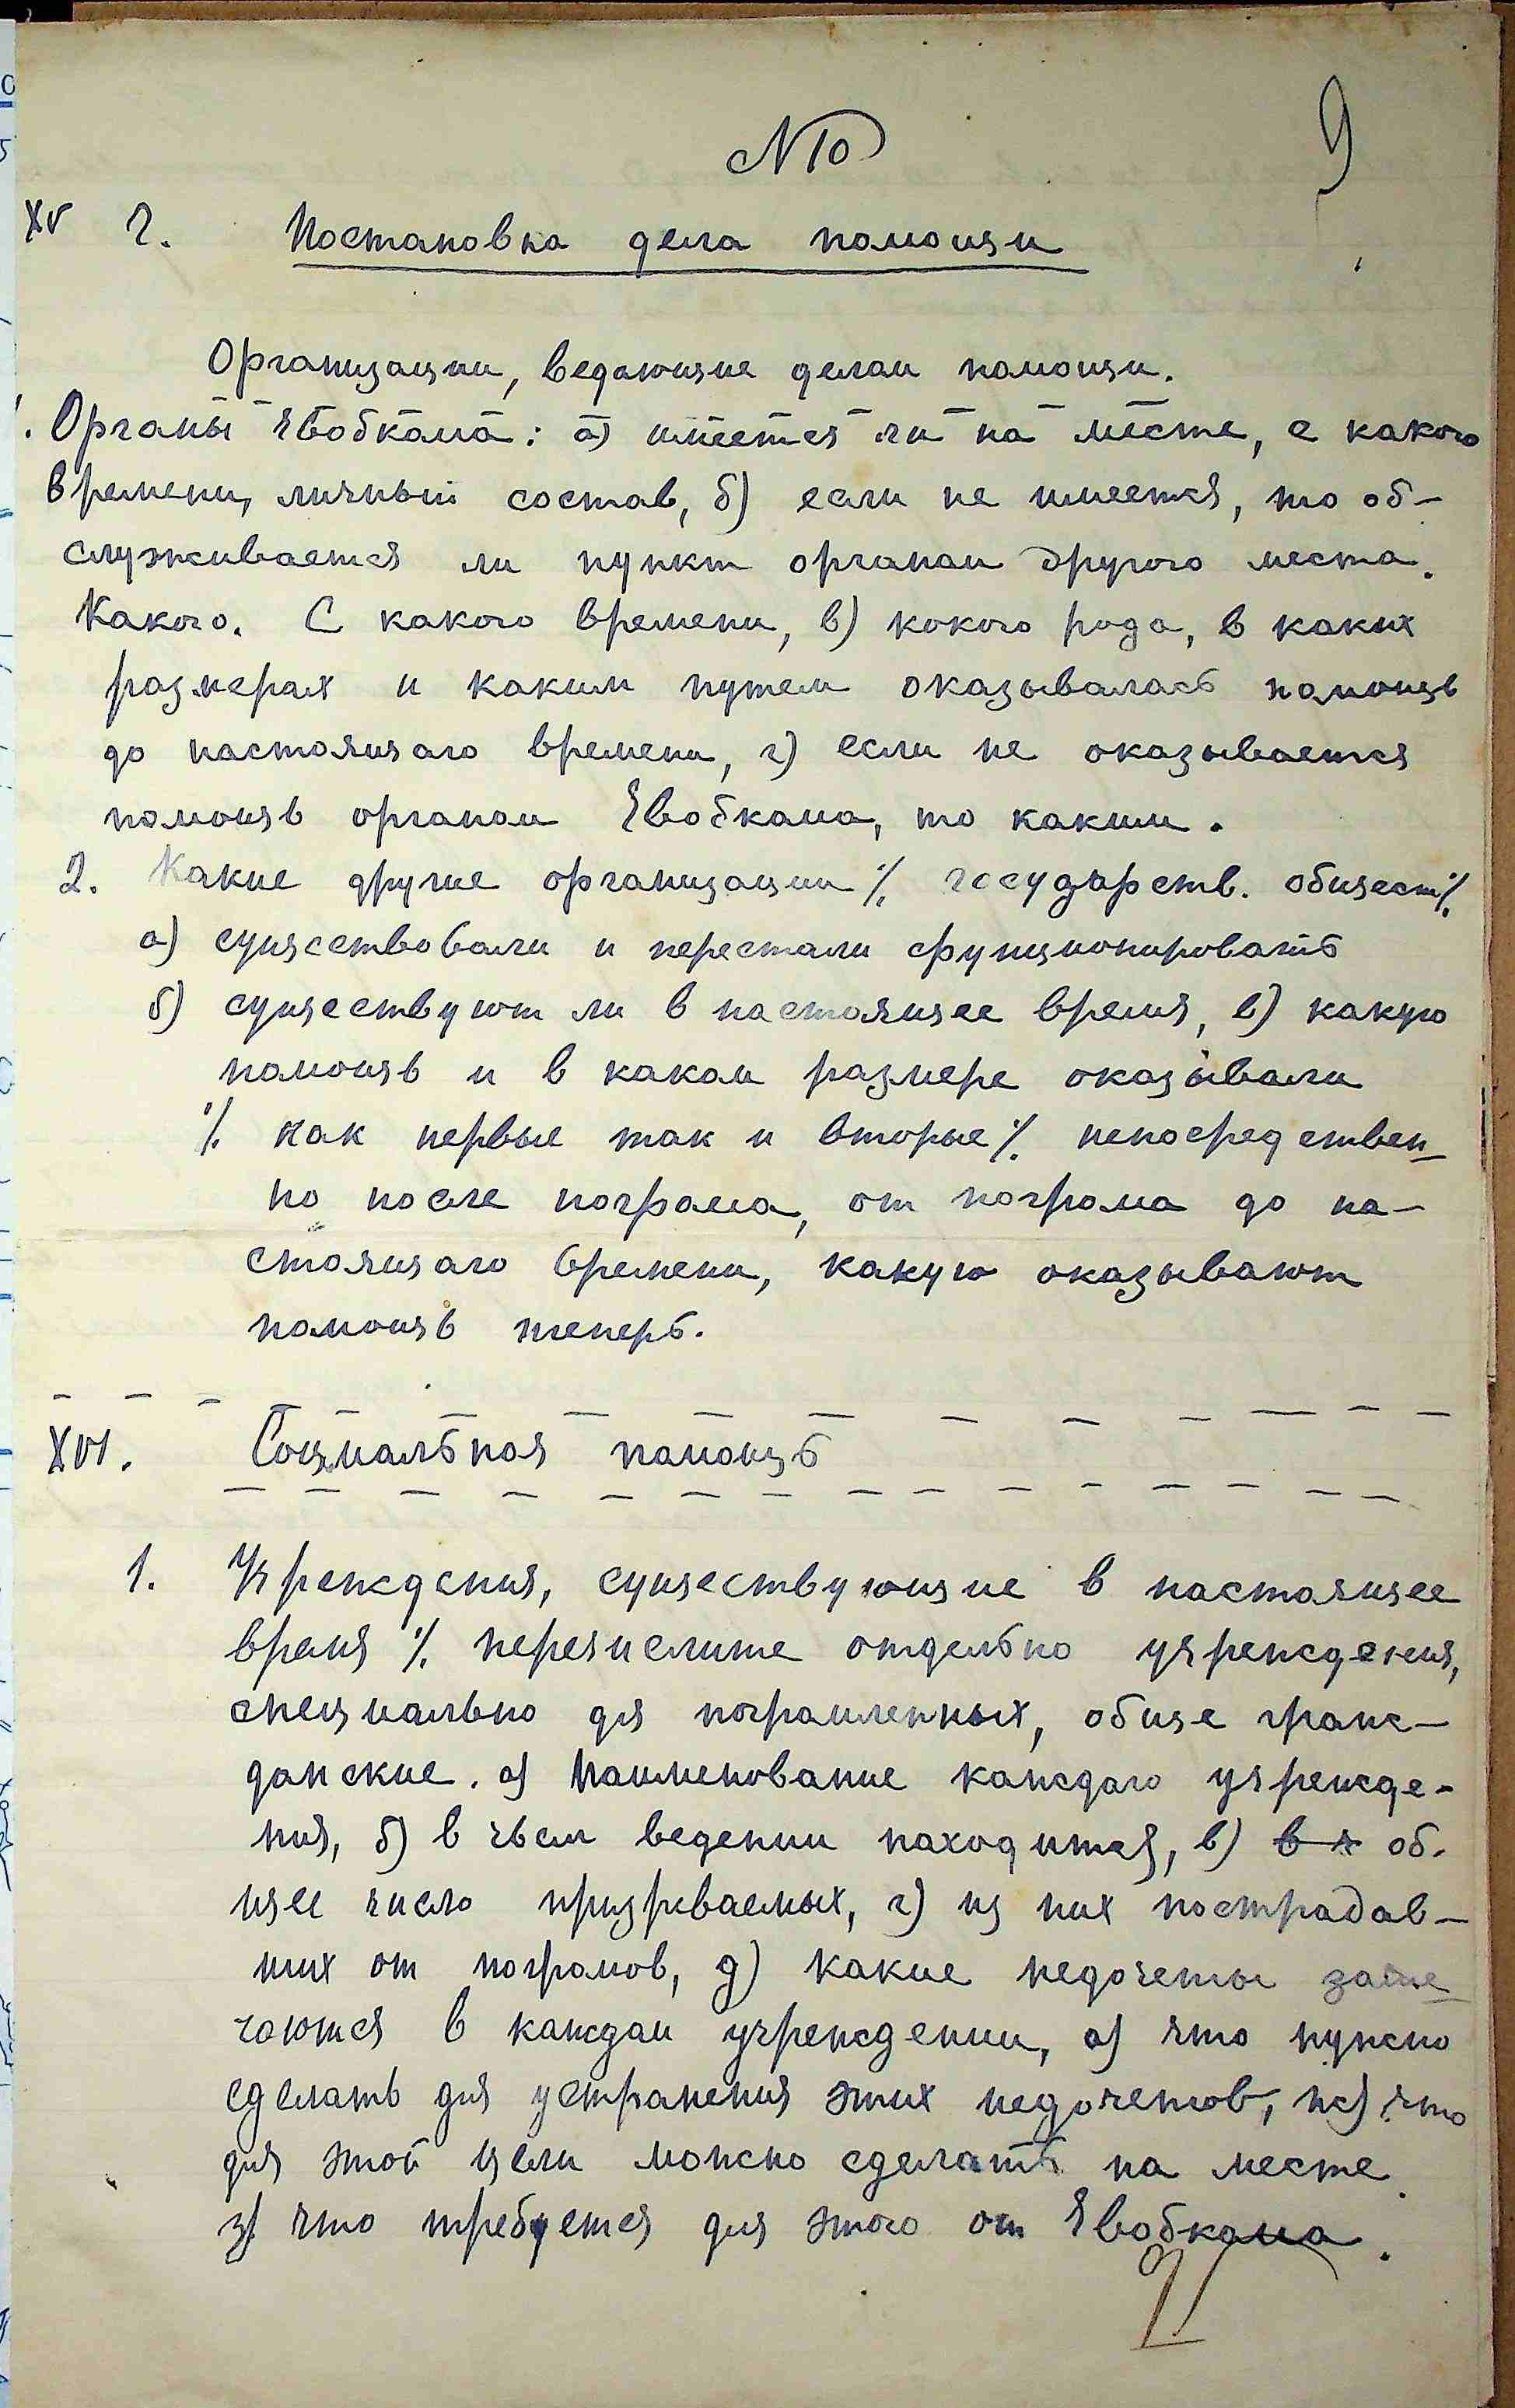 N 10
9
XV 2. Постановка дела помощи
Организации, ведающие делом помощи.
. Органы Евобкома: а) имеется ли на месте, с какого
времени, личный состав, б) если не имеется, то об-
служивается ли пункт органом другого места.
Какого. С какого времени, в) кокого рода, в каких
размерах и каким путем оказывалась помощь
до настоящаго времени, г) если не оказывается
помощь органом Евобкома, то каким.
2. Какие другие организации % государств. общест%
а) существовали и перестали функционировать
б) существуют ли в настоящее время, в) какую
помощь и в каком размере оказывали
% как первые так и вторые % непосредствен-
но после погрома, от погрома до на-
стоящаго времени, какую оказывают
помощь теперь.
XVI. Социальная помощь
1. Учреждения, существующие в настоящее
время % перечислите отдельно учреждения,
специально для погромленных, общие граж-
данские. а) Наименование каждаго учрежде-
ния, б) в чьем ведении находится, в) в об-
щее число призреваемых, г) из них пострадав-
ших от погромов, д) какие недочеты заме-
чаются в каждом учреждении, а) что нужно
сделать для устранения этих недочетов, ж) что
для этой цели можно сделать на месте.
з) что требуется для этого от Евобкома.